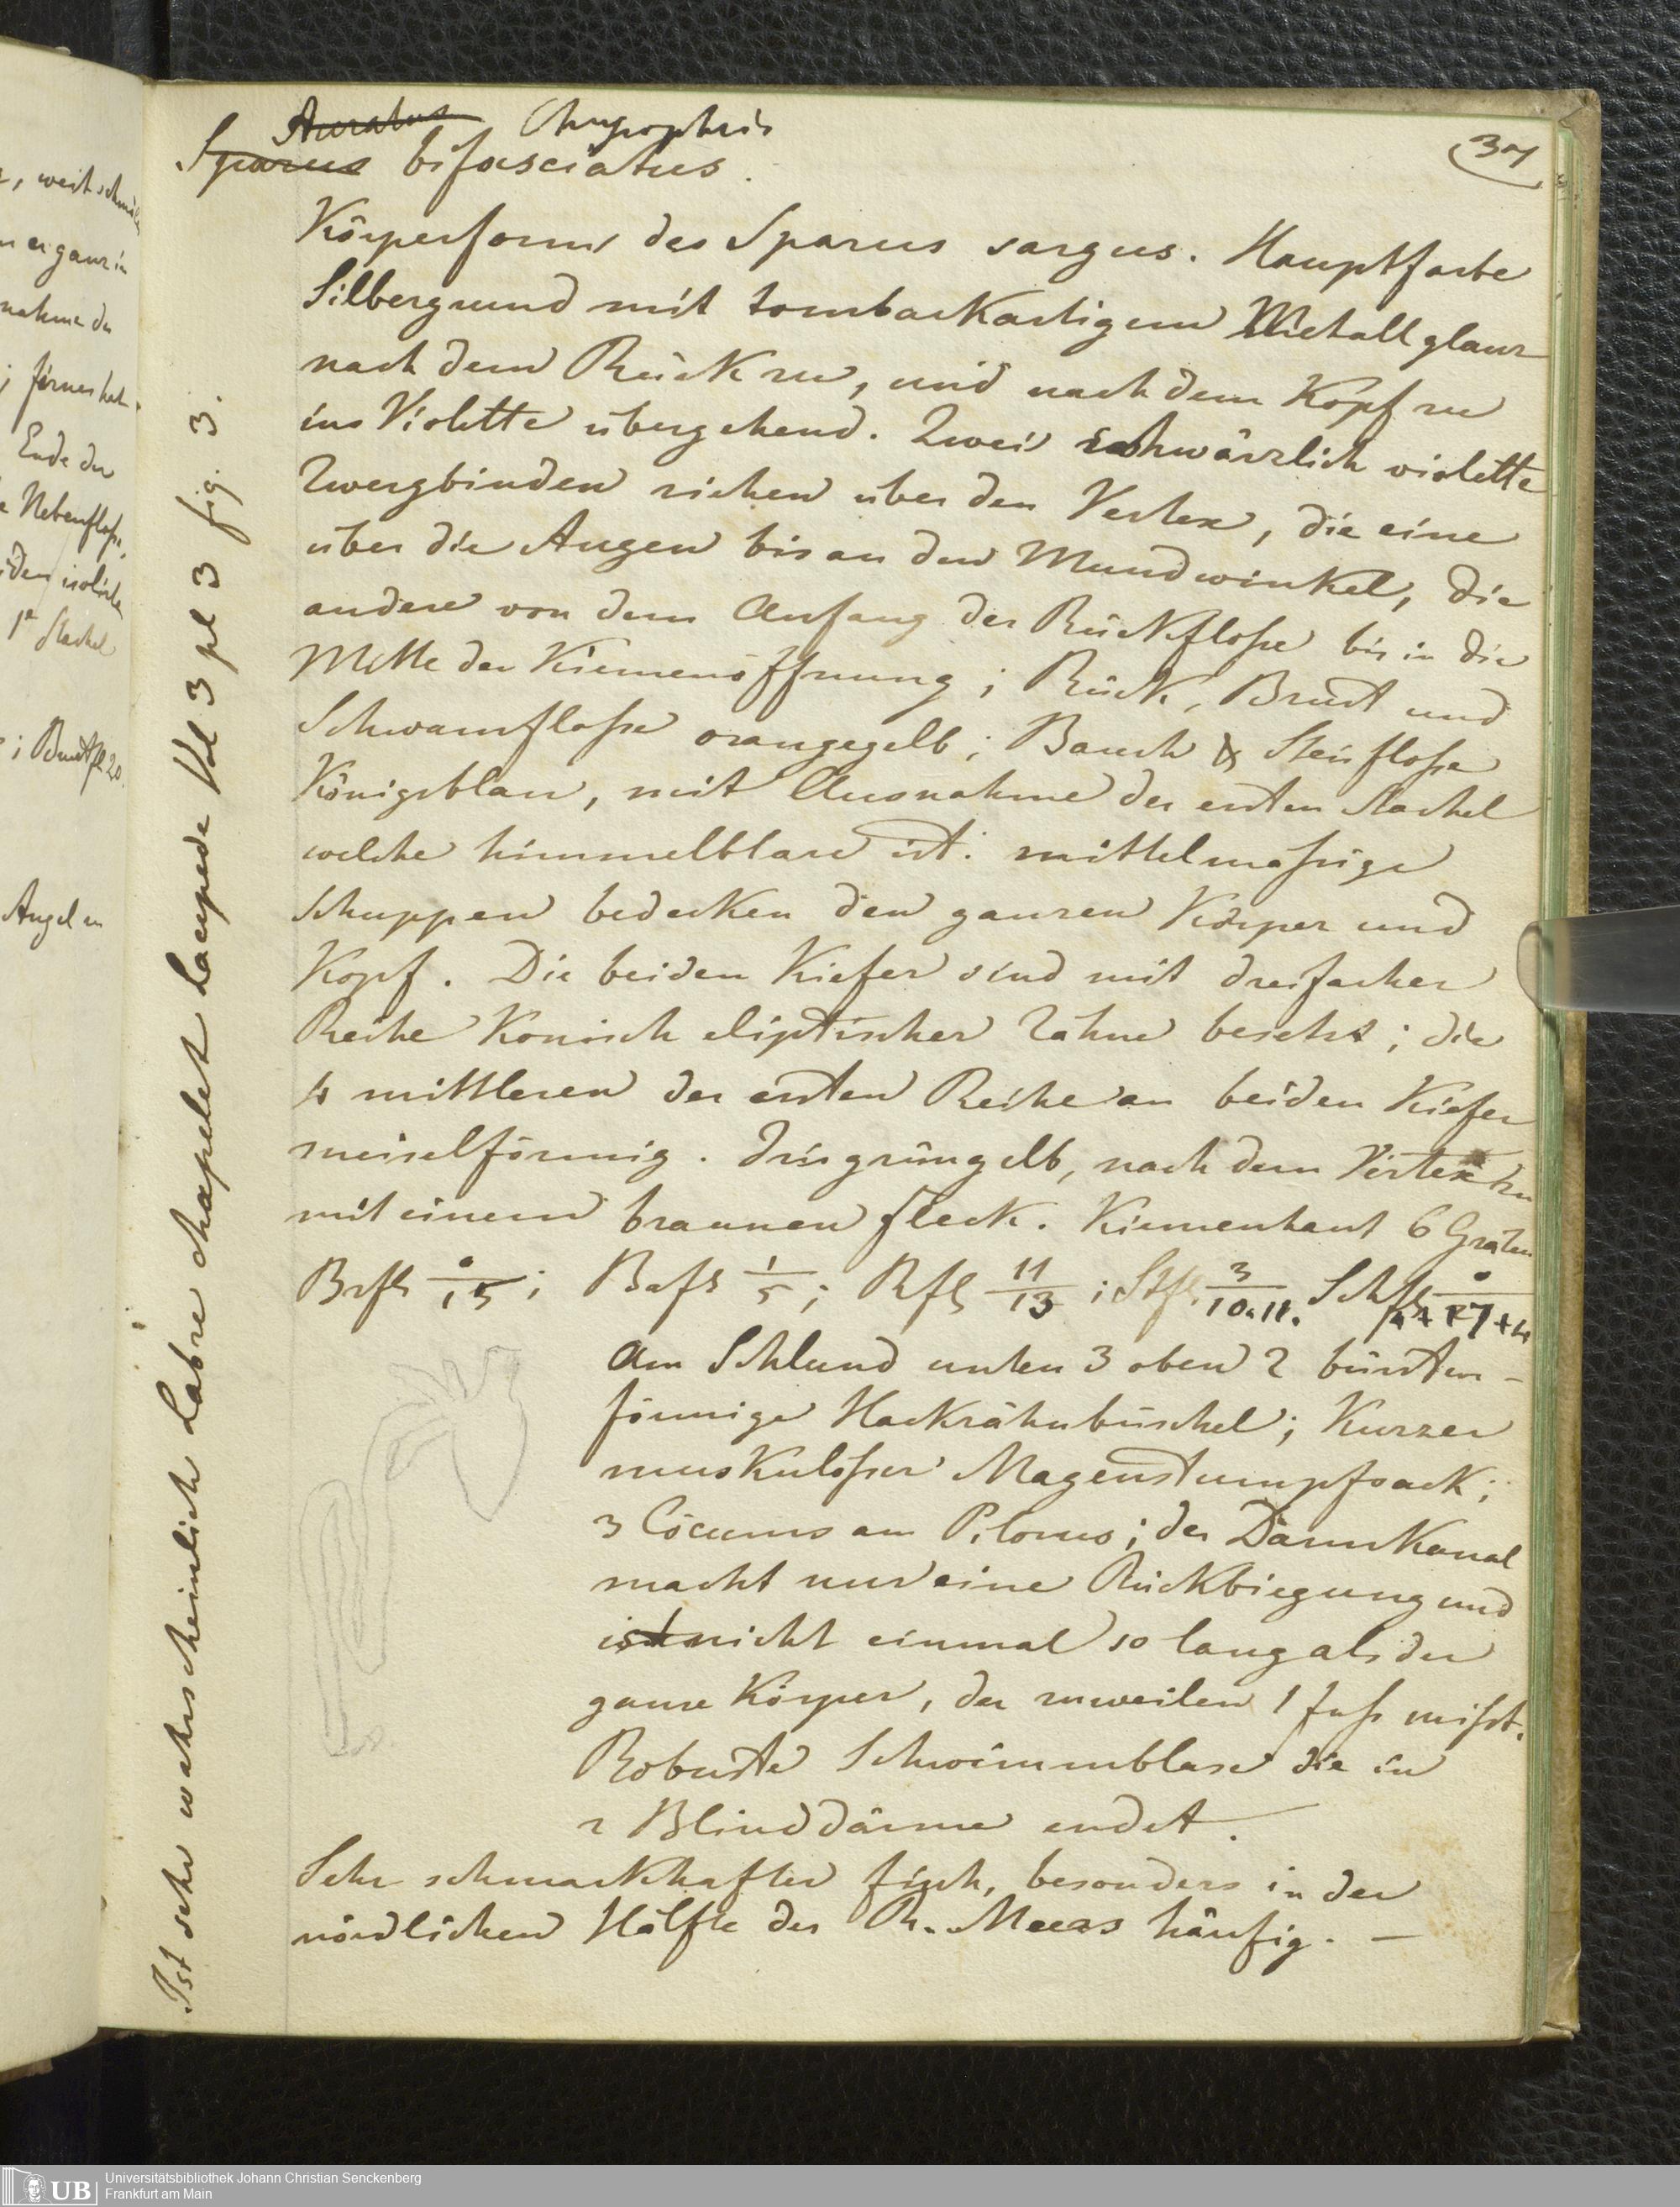 37
Auratus Chrysophris
Sparus bifasciatus.
Körperform des Sparus sargus. Hauptfarbe
Silbergrund mit tombarkartigem Metallglanz
nach dem Rück zu, und nach dem Kopf zu
ins Violette übergehend. Zwei schwärzlich violette
Zwergbinden ziehen über den Vertex, die eine
über die Augen bis an den Mundwinkel, die
andere von dem Anfang der Rückfloße bis in die
Mitte der Kiemenöffnung; Rück, Brust und
Schwanzfloße orangegelb; Bauch & Steisfloße
Königsblau, mit Ausnahme der ersten Stachel
welche himmelblau ist. mittelmäßige
Schuppen bedecken den ganzen Körper und
Kopf. Die beiden Kiefer sind mit dreifacher
Reihe Konisch eliptischer Zähne besetzt; die
4 mittleren der ersten Reihe an beiden Kiefer
meiselförmig. Iris grüngelb, nach dem Vertex zu
mit einem braunen Fleck. Kiemenhaut 6 Gräten
Brfl 0/15; Bafl 1/5; Rfl 11/13; Stfl 3/10.11. Schfl 0/17+4
Am Schlund unten 3 oben 2 bürsten-
förmige Hackzähnbüschel; Kurzer
muskulößer Magenstumpfsack;
3 Cöcums am Pilorus; der Darmkanal
macht nur eine Rückbiegung und
ist nicht einmal so lang als der
ganze Körper, der zuweilen 1 Fuß mißt.
Robuste Schwimmblase die in
2 Blinddärme endet.
Sehr schmackhafter Fisch, besonders in der
nördlichen Hälfte des R. Meers häufig. —
Ist sehr wahrscheinlich Labre chapelet Lacepede Vol 3 pl 3 fig. 3.
weit
er ganz in
nahme der
; ferner hat
Ende der
Nebenfloße,
1e Stachel
; Brustfl 20.
Angel
UB
Universitätsbibliothek Johann Christian Senckenberg
Frankfurt am Main